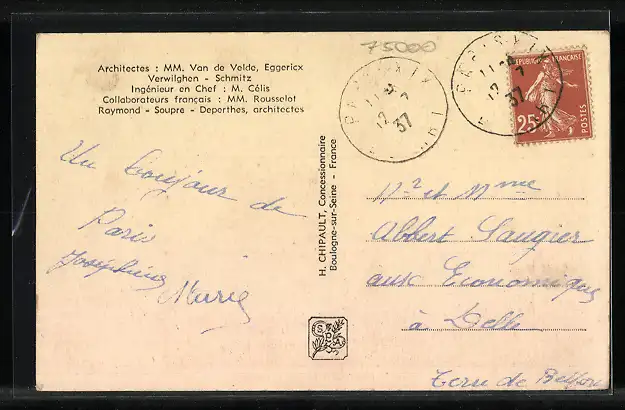 75000
Architectes : MM. Van de Velde, Eggericx
Verwilghen - Schmitz
Ingénieur en Chef : M. Célis
Collaborateurs français : MM. Rousselot
Raymond - Soupre - Deperthes, architectes
Un bonjour de
Paris
Joséphine
Marie
H. CHIPAULT, Concessionnaire
Boulogne-sur-Seine - France
PARIS XIV
12 7
37
PARIS XIV
12 7
37
REPUBLIQUE FRANÇAISE
25c
POSTES
Mr et Mme
Albert Saugier
aux Economiques
à Delle
Terre de Belfort